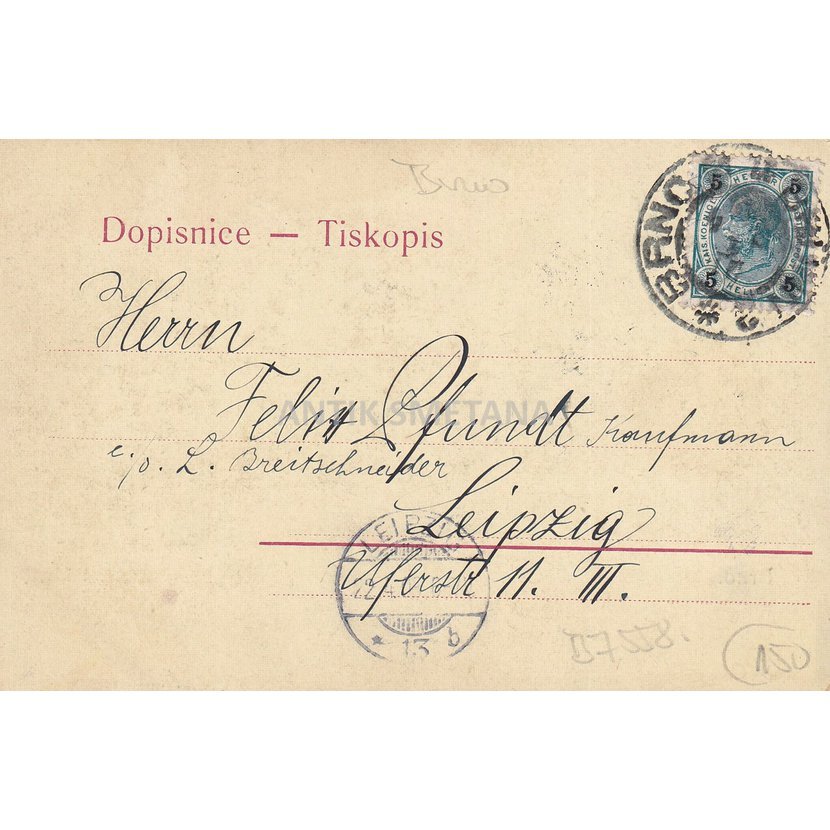 Brno
Dopisnice — Tiskopis
BRNO
5 HELLER 5
KAIS. KOENIGL.
5 HELLER 5
Herrn
Felix Pfundt Kaufmann
ANTIK SMETANA
c/o. L. Breitschneider
Leipzig
LEIPZIG
Uferstr 11. III.
* 13 b
B7558.
150